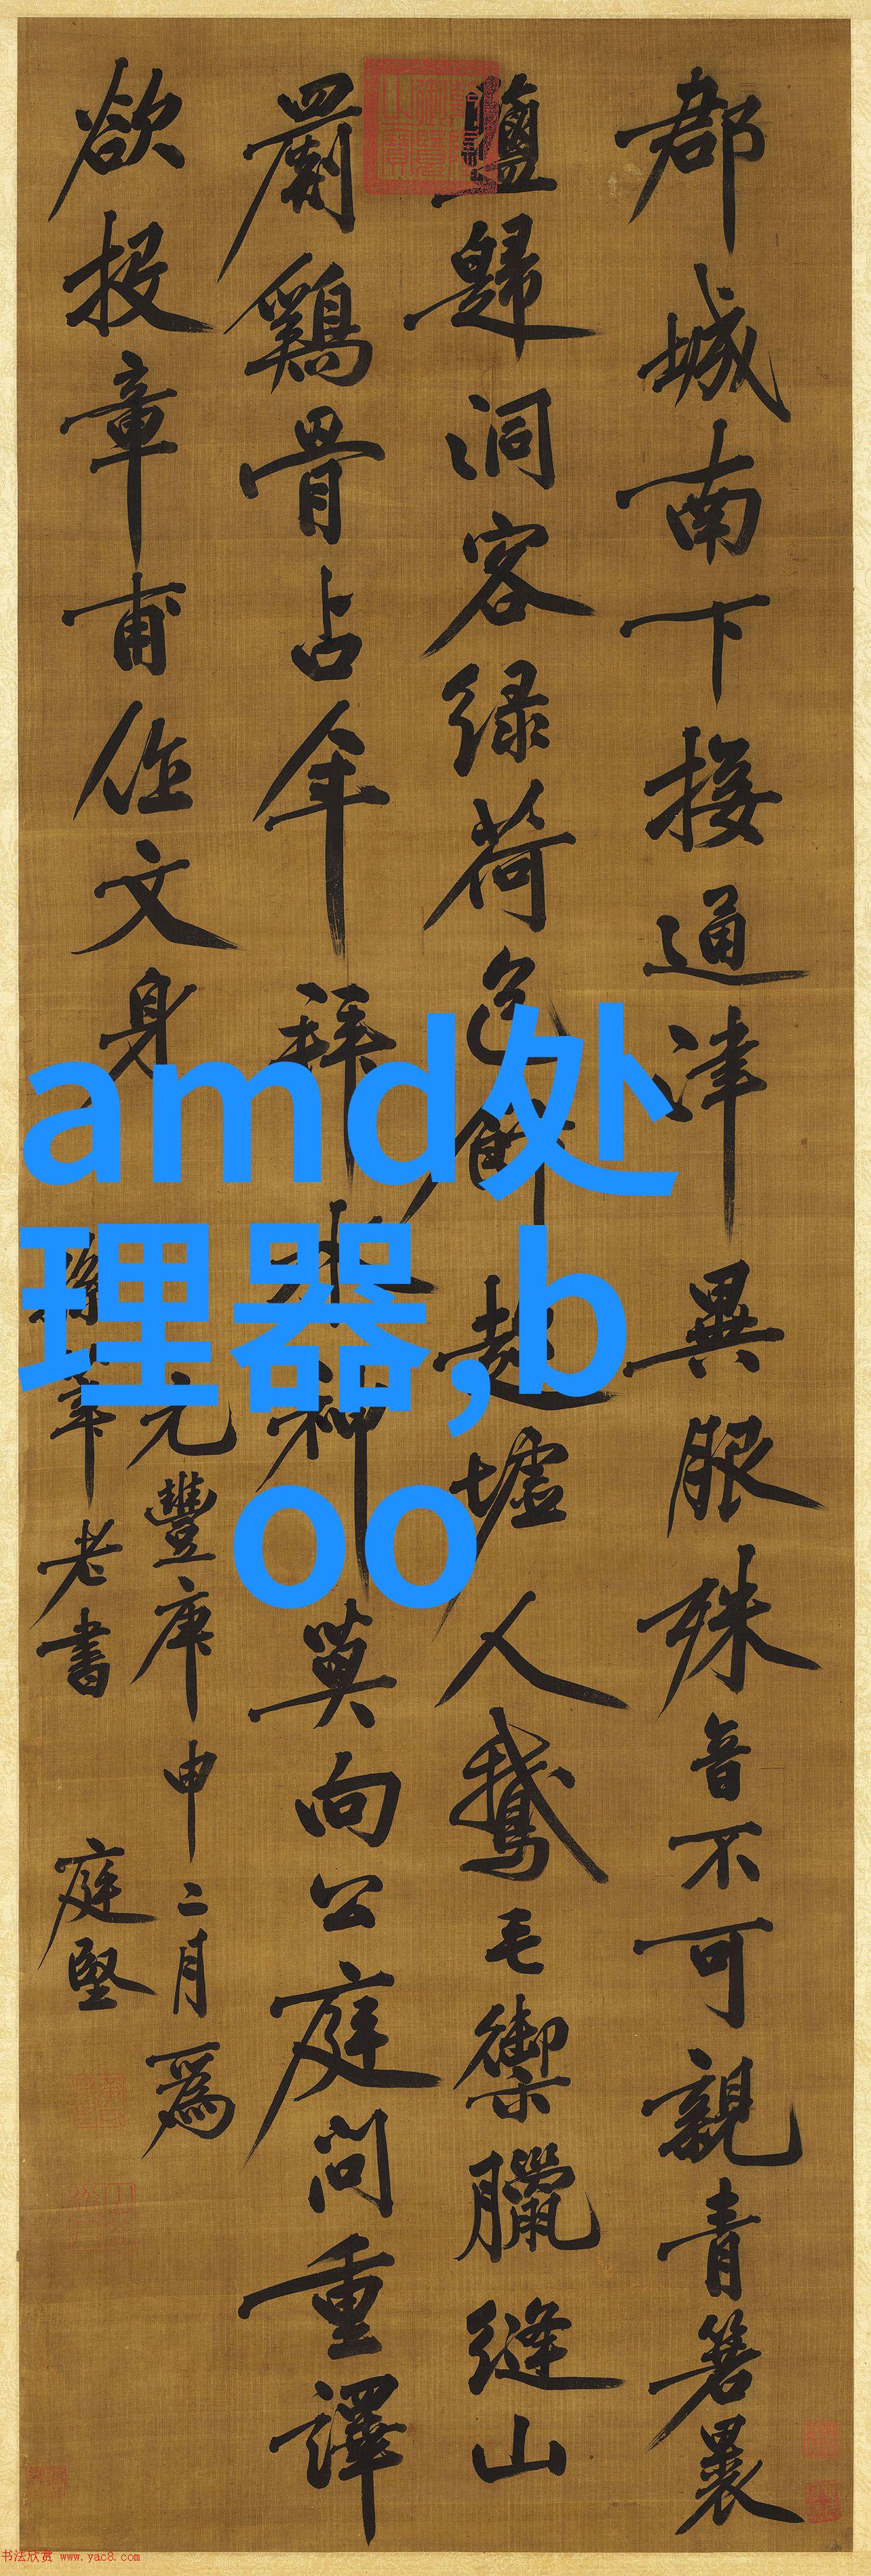 郡城南下接通津異服殊音不可親青箬裹
鹽歸洞客緑荷包飯趂墟人鵝毛禦臘縫山
罽鷄骨占年拜水神莫向公庭問重譯
欲投章甫作文身
元豐庚申二月爲
孫莘老書 庭堅
amd处
理器,b
oo
书法欣赏 www.yac8.com